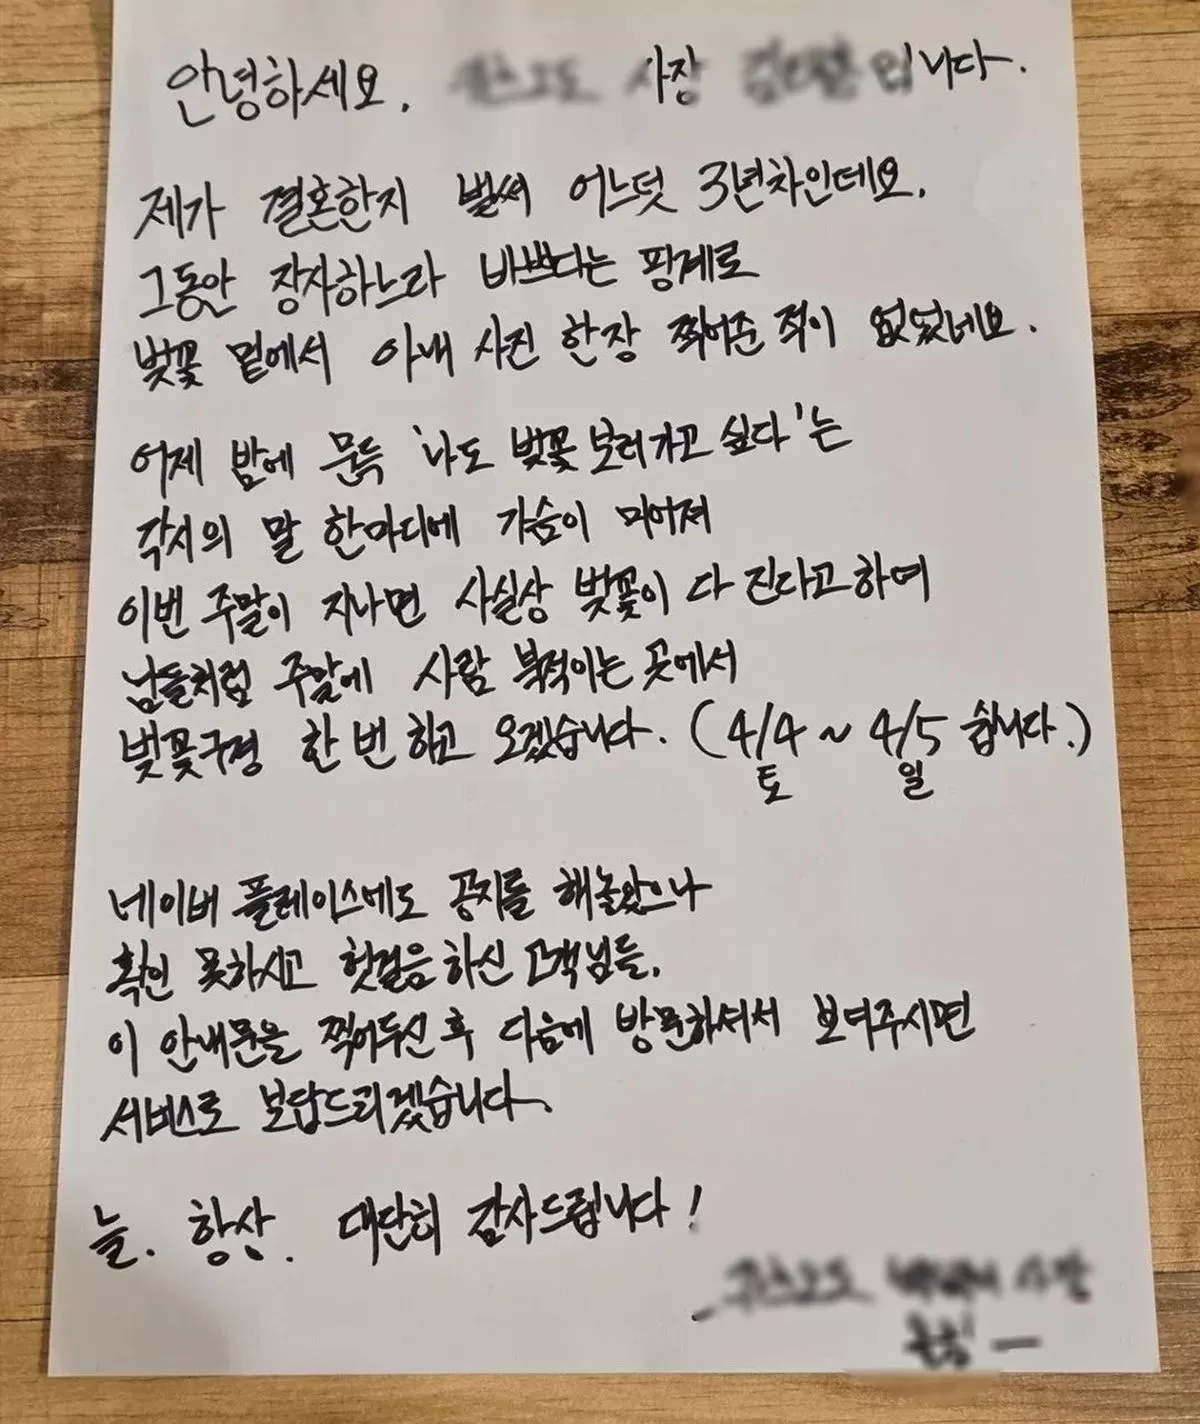 안녕하세요. 사장 입니다.
제가 결혼한지 벌써 어느덧 3년차인데요.
그동안 장사하느라 바쁘다는 핑계로
벚꽃 밑에서 아내 사진 한장 찍어준 적이 없었네요.
어제 밤에 문득 '나도 벚꽃 보러가고 싶다'는
각시의 말 한마디에 가슴이 미어져
이번 주말이 지나면 사실상 벚꽃이 다 진다고하여
남들처럼 주말에 사람 북적이는 곳에서
벚꽃구경 한 번 하고 오겠습니다. (4/4 ~ 4/5 쉽니다.)
토 일
네이버 플레이스에도 공지를 해놓았으나
확인 못하시고 헛걸음 하신 고객님들,
이 안내문을 찍어두신 후 다음에 방문하셔서 보여주시면
서비스로 보답드리겠습니다.
늘. 항상. 대단히 감사드립니다!